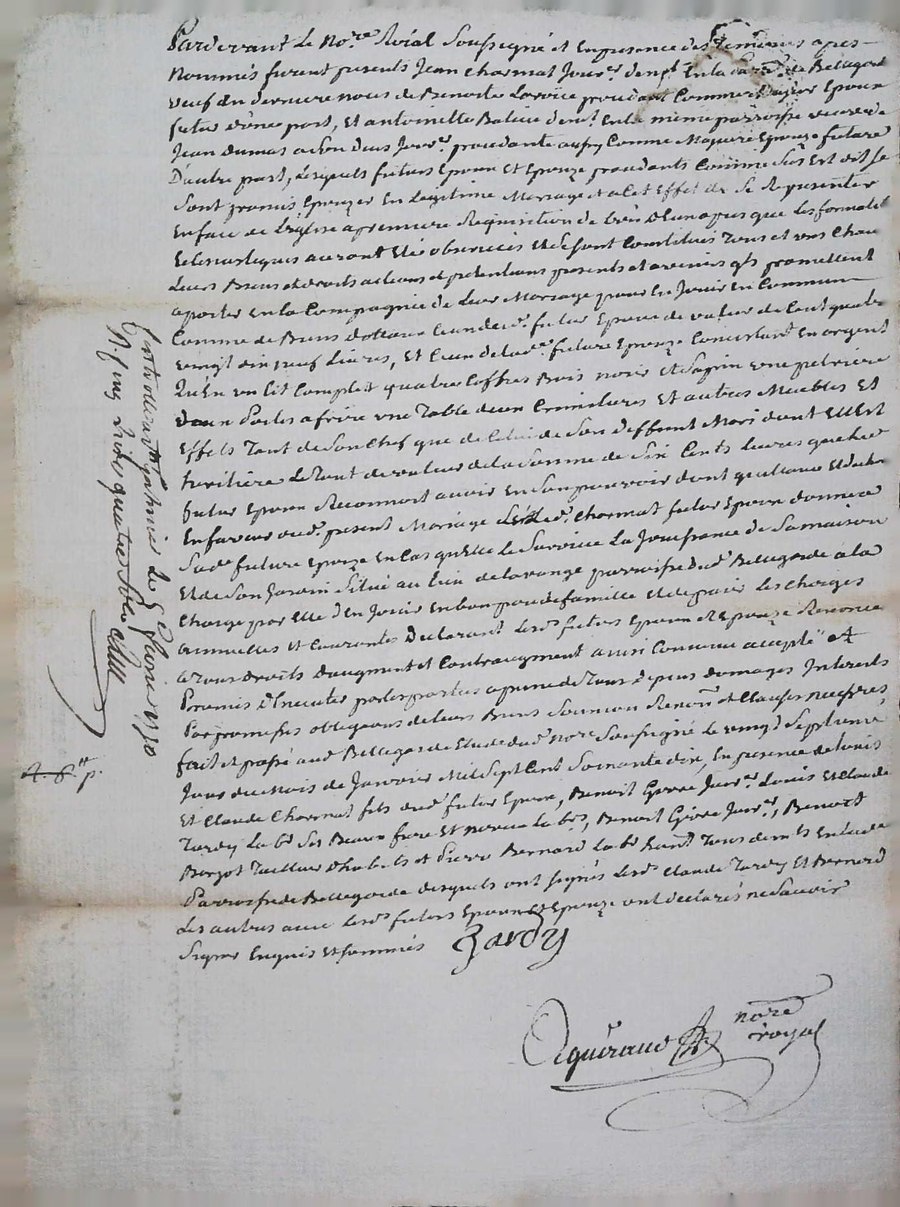 Pardevant Le No.re Roial Soussigné et En presence des temoins apres
Nommés furent presents Jean Charmat Jour.r dem.t En la de Bellegarde
veuf en derniere noces de Benoite procedant Comme Majeur Epoux
futur d'une part, Et antoinette dem.t En la même parroisse veuve de
Jean Dumas a son Jour.r procedante aussy Comme Majeure Epouze future
D'autre part, Lesquels futurs Epoux et Epouze procedants Comme Sus Est dit se
Sont promis Epouzer En Legitime Mariage et a Cet Effet de Se Representer
En face de L'Eglise a premiere Requisition de L'un d'eux apres que Les formalités
auront Eté observées Et Se sont Constitués Tous et uns Chacuns
Leurs Biens et droits actions et pretentions presents et avenirs qls promettent
aporter en la Compagnie de Leur Mariage pour En Jouir En Commun
Comme de Biens dottaux Ceux dud. futur Epoux de valeur de Cent quatre
vingt dix neuf Livres, Et Ceux de lad.e future Epouze Consistant En argent
Un Lit Complet quatre Coffres Bois noier et Sapin une petriere
deux Poeles a frire une Table deux Cremileres Et autres Meubles Et
Effets Tant de Son Chef que de Celui de Son deffunt Mari dont Elle Est
heritiere Le Tout de valeur de la Somme de Six Cents Livres que Led.
futur Epoux Reconnoit avoir En Son pouvoir dont quittance Et
En faveur dud. present Mariage Led. Charmat futur Epoux donne a
Sad.e future Epouze En Cas qu'Elle Le Survive La Jouissance de Sa maison
Et de Son Jardin Situé au Lieu de parroisse dud. Bellegarde a la
Charge par Elle d'En Jouir En bon pere de famille Et de paier Les Charges
annuelles Et Courantes Declarant Les.d futurs Epoux et Epouze Renoncer
a Tous droits d'augment et Contraugment ainsi Convenu accepté et
Promis Executer par les parties a peine de Tous Depens domages Interests
Par promesses obligations de leurs Biens Soumission Renon.on et Clauses necessaires
fait et passé aud. Bellegarde Etude dud. No.re Soussigné Le vingt Septieme
Jour du Mois de Janvier Mil Sept Cent Soixante dix, En presence de Louis
Et Claude Charmat fils dud. futur Epoux, Benoit Jour.r, Louis Et Claude
Tardy La.b Ses Beaux frere Et neveu La.b, Benoit Jour.r, Benoit
Bergot Tailleur D'habits et Pierre Bernard La.b Tous dem.ts En lad.
Parroisse de Bellegarde desquels ont Signés Les.d Claude Tardy Et Bernard
Les autres avec Les.d futurs Epoux et Epouze ont déclarés ne Savoir
Signer Enquis Et Sommés
Tardy
no.re
royal
Controllé a Le fevrier 1770
quatre Sols